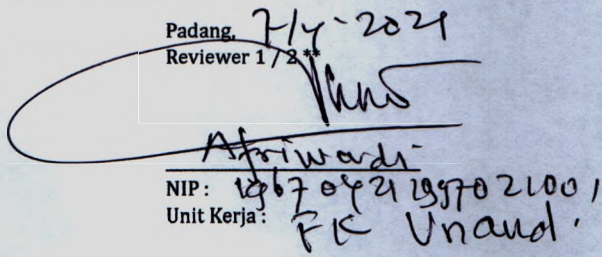 Padang, 7/4-2021
Reviewer 1 / 2 **
Afriwardi
NIP : 196704211997021001
Unit Kerja : FK Unand.